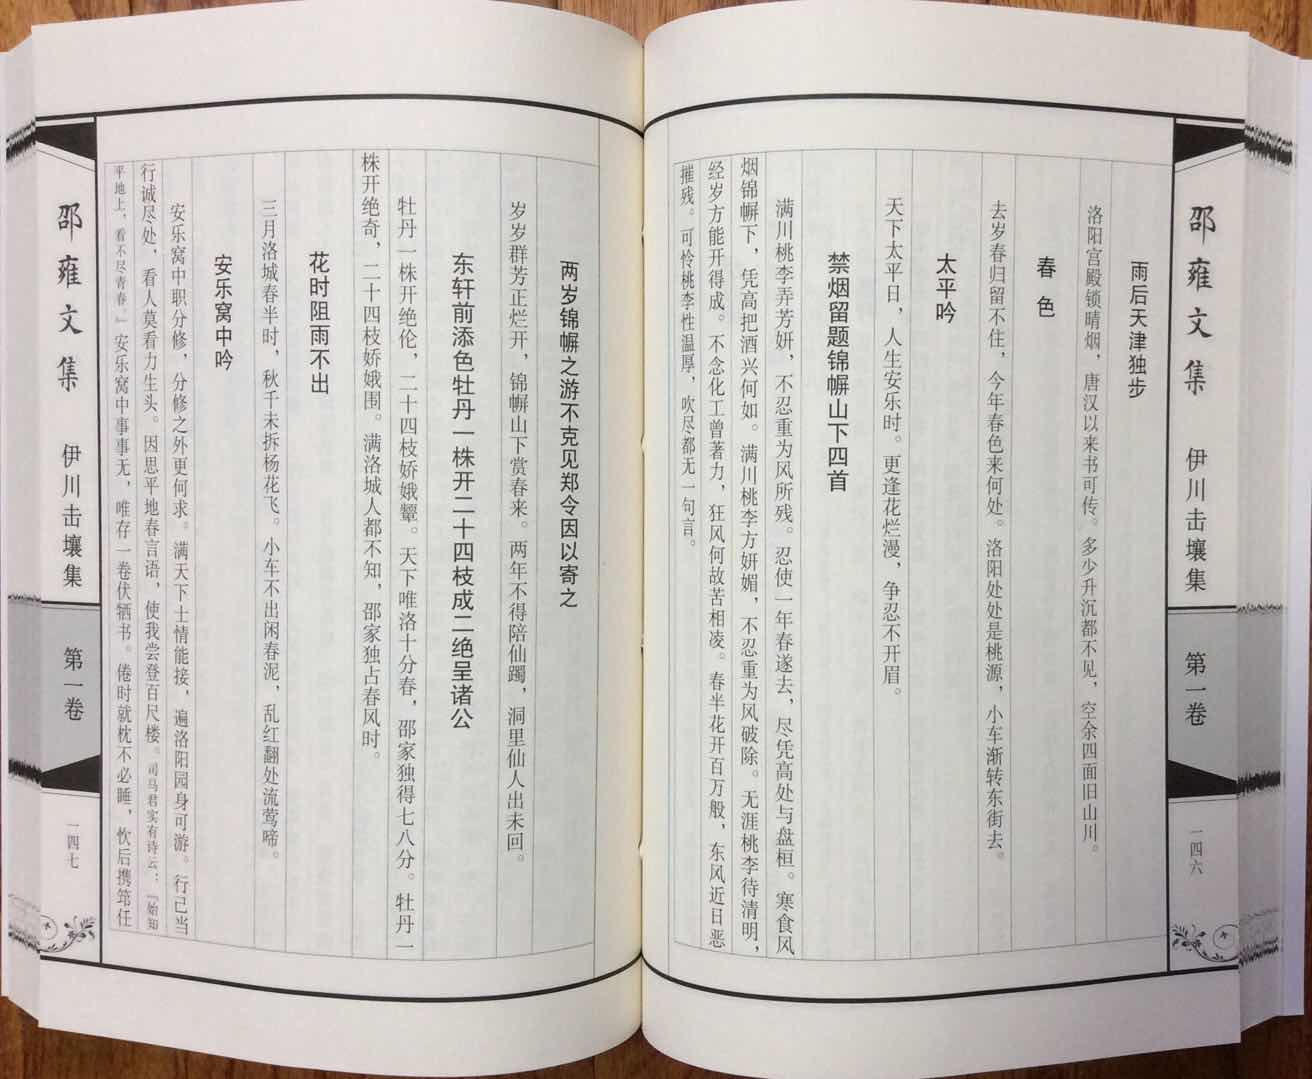 邵雍文集
伊川击壤集
第一卷
一四六
雨后天津独步
洛阳宫殿锁晴烟，唐汉以来书可传。多少升沉都不见，空余四面旧山川。
春色
去岁春归留不住，今年春色来何处。洛阳处处是桃源，小车渐转东街去。
太平吟
天下太平日，人生安乐时。更逢花烂漫，争忍不开眉。
禁烟留题锦幈山下四首
满川桃李弄芳妍，不忍重为风所残。忍使一年春遂去，尽凭高处与盘桓。寒食风
烟锦幈下，凭高把酒兴何如。满川桃李方妍媚，不忍重为风破除。无涯桃李待清明，
经岁方能开得成。不念化工曾著力，狂风何故苦相凌。春半花开百万般，东风近日恶
摧残。可怜桃李性温厚，吹尽都无一句言。
两岁锦幈之游不克见郑令因以寄之
岁岁群芳正烂开，锦幈山下赏春来。两年不得陪仙躅，洞里仙人出未回。
东轩前添色牡丹一株开二十四枝成二绝呈诸公
牡丹一株开绝伦，二十四枝娇娥颦。天下唯洛十分春，邵家独得七八分。牡丹一
株开绝奇，二十四枝娇娥围。满洛城人都不知，邵家独占春风时。
花时阻雨不出
三月洛城春半时，秋千未拆杨花飞。小车不出闲春泥，乱红翻处流莺啼。
安乐窝中吟
安乐窝中职分修，分修之外更何求。满天下士情能接，遍洛阳园身可游。行己当
行诚尽处，看人莫看力生头。因思平地春言语，使我尝登百尺楼。司马君实有诗云：『始知
平地上，看不尽青春。』安乐窝中事事无，唯存一卷伏牺书。倦时就枕不必睡，忺后携筇任
邵雍文集
伊川击壤集
第一卷
一四七